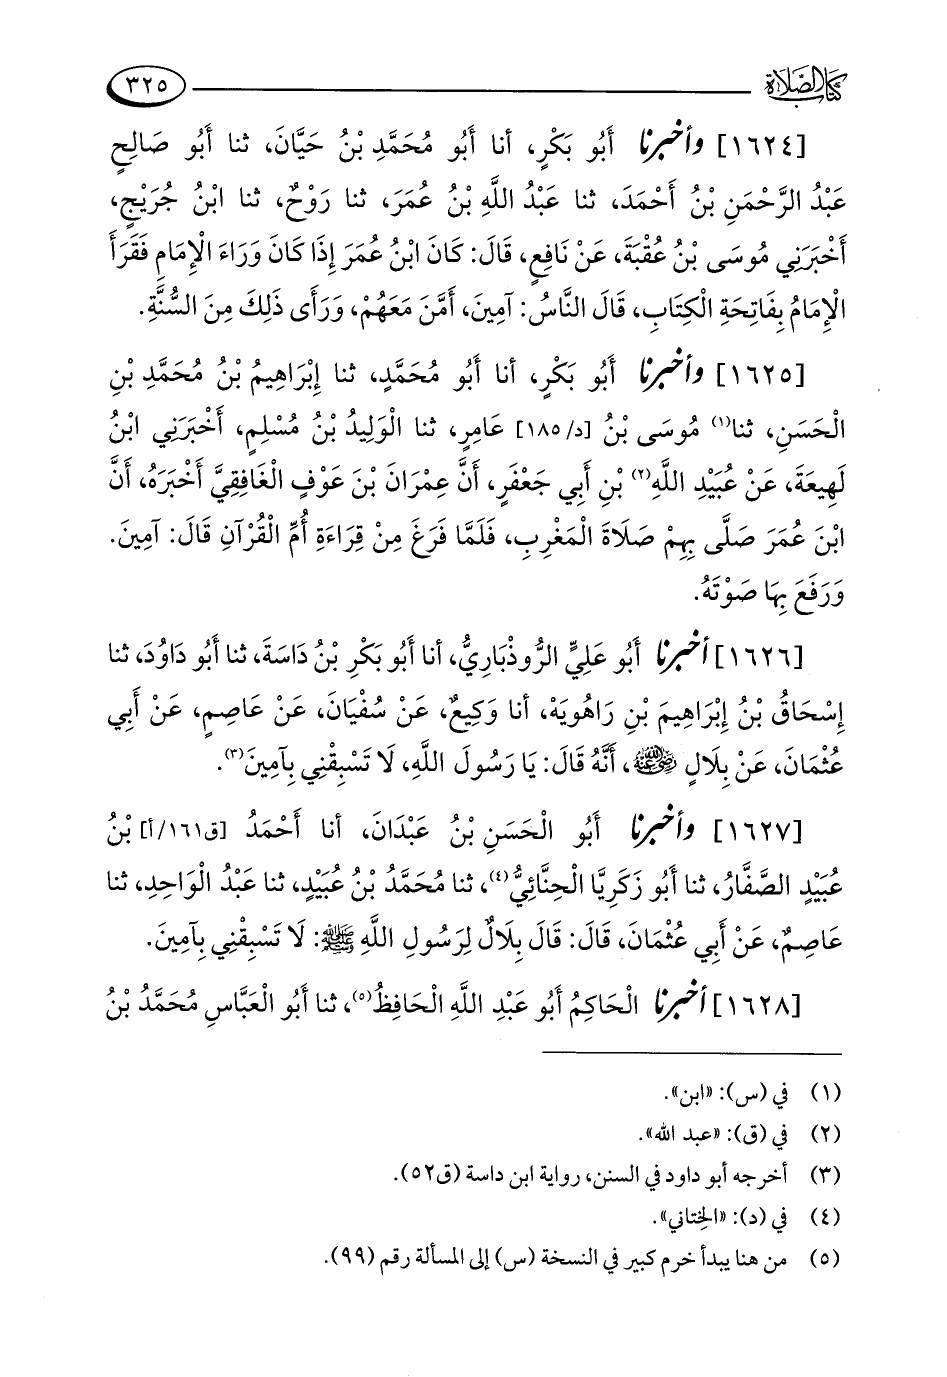 كتاب الصلاة ٣٢٥
[١٦٢٤] وأخبرنا أَبُو بَكْرٍ، أنا أَبُو مُحَمَّدِ بْنُ حَيَّانَ، ثنا أَبُو صَالِحٍ
عَبْدُ الرَّحْمَنِ بْنُ أَحْمَدَ، ثنا عَبْدُ اللَّهِ بْنُ عُمَرَ، ثنا رَوْحٌ، ثنا ابْنُ جُرَيْجٍ،
أَخْبَرَنِي مُوسَى بْنُ عُقْبَةَ، عَنْ نَافِعٍ، قَالَ: كَانَ ابْنُ عُمَرَ إِذَا كَانَ وَرَاءَ الْإِمَامِ فَقَرَأَ
الْإِمَامُ بِفَاتِحَةِ الْكِتَابِ، قَالَ النَّاسُ: آمِينَ، أَمَّنَ مَعَهُمْ، وَرَأَى ذَلِكَ مِنَ السُّنَّةِ.
[١٦٢٥] وأخبرنا أَبُو بَكْرٍ، أنا أَبُو مُحَمَّدٍ، ثنا إِبْرَاهِيمُ بْنُ مُحَمَّدِ بْنِ
الْحَسَنِ، ثنا(١) مُوسَى بْنُ [د/١٨٥] عَامِرٍ، ثنا الْوَلِيدُ بْنُ مُسْلِمٍ، أَخْبَرَنِي ابْنُ
لَهِيعَةَ، عَنْ عُبَيْدِ اللَّهِ(٢) بْنِ أَبِي جَعْفَرٍ، أَنَّ عِمْرَانَ بْنَ عَوْفٍ الْغَافِقِيَّ أَخْبَرَهُ، أَنَّ
ابْنَ عُمَرَ صَلَّى بِهِمْ صَلَاةَ الْمَغْرِبِ، فَلَمَّا فَرَغَ مِنْ قِرَاءَةِ أُمِّ الْقُرْآنِ قَالَ: آمِينَ.
وَرَفَعَ بِهَا صَوْتَهُ.
[١٦٢٦] أخبرنا أَبُو عَلِيٍّ الرُّوذْبَارِيُّ، أنا أَبُو بَكْرِ بْنُ دَاسَةَ، ثنا أَبُو دَاوُدَ، ثنا
إِسْحَاقُ بْنُ إِبْرَاهِيمَ بْنِ رَاهُويَهْ، أنا وَكِيعٌ، عَنْ سُفْيَانَ، عَنْ عَاصِمٍ، عَنْ أَبِي
عُثْمَانَ، عَنْ بِلَالٍ رضي الله عنه، أَنَّهُ قَالَ: يَا رَسُولَ اللَّهِ، لَا تَسْبِقْنِي بِآمِينَ(٣).
[١٦٢٧] وأخبرنا أَبُو الْحَسَنِ بْنُ عَبْدَانَ، أنا أَحْمَدُ [ق١٦١/أ] بْنُ
عُبَيْدٍ الصَّفَّارُ، ثنا أَبُو زَكَرِيَّا الْحِنَّائِيُّ(٤)، ثنا مُحَمَّدُ بْنُ عُبَيْدٍ، ثنا عَبْدُ الْوَاحِدِ، ثنا
عَاصِمٌ، عَنْ أَبِي عُثْمَانَ، قَالَ: قَالَ بِلَالٌ لِرَسُولِ اللَّهِ ﷺ: لَا تَسْبِقْنِي بِآمِينَ.
[١٦٢٨] أخبرنا الْحَاكِمُ أَبُو عَبْدِ اللَّهِ الْحَافِظُ(٥)، ثنا أَبُو الْعَبَّاسِ مُحَمَّدُ بْنُ
(١) في (س): «ابن».
(٢) في (ق): «عبد الله».
(٣) أخرجه أبو داود في السنن، رواية ابن داسة (ق٥٢).
(٤) في (د): «الختاني».
(٥) من هنا يبدأ خرم كبير في النسخة (س) إلى المسألة رقم (٩٩).